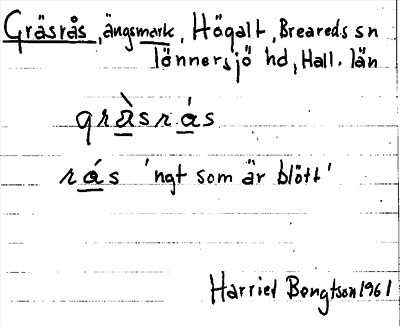 Gräsrås, ängsmark, Högalt, Breareds sn
Tönnersjö hd, Hall. län
gràsrás
rás 'ngt som är blött'
Harriet Bengtson 1961